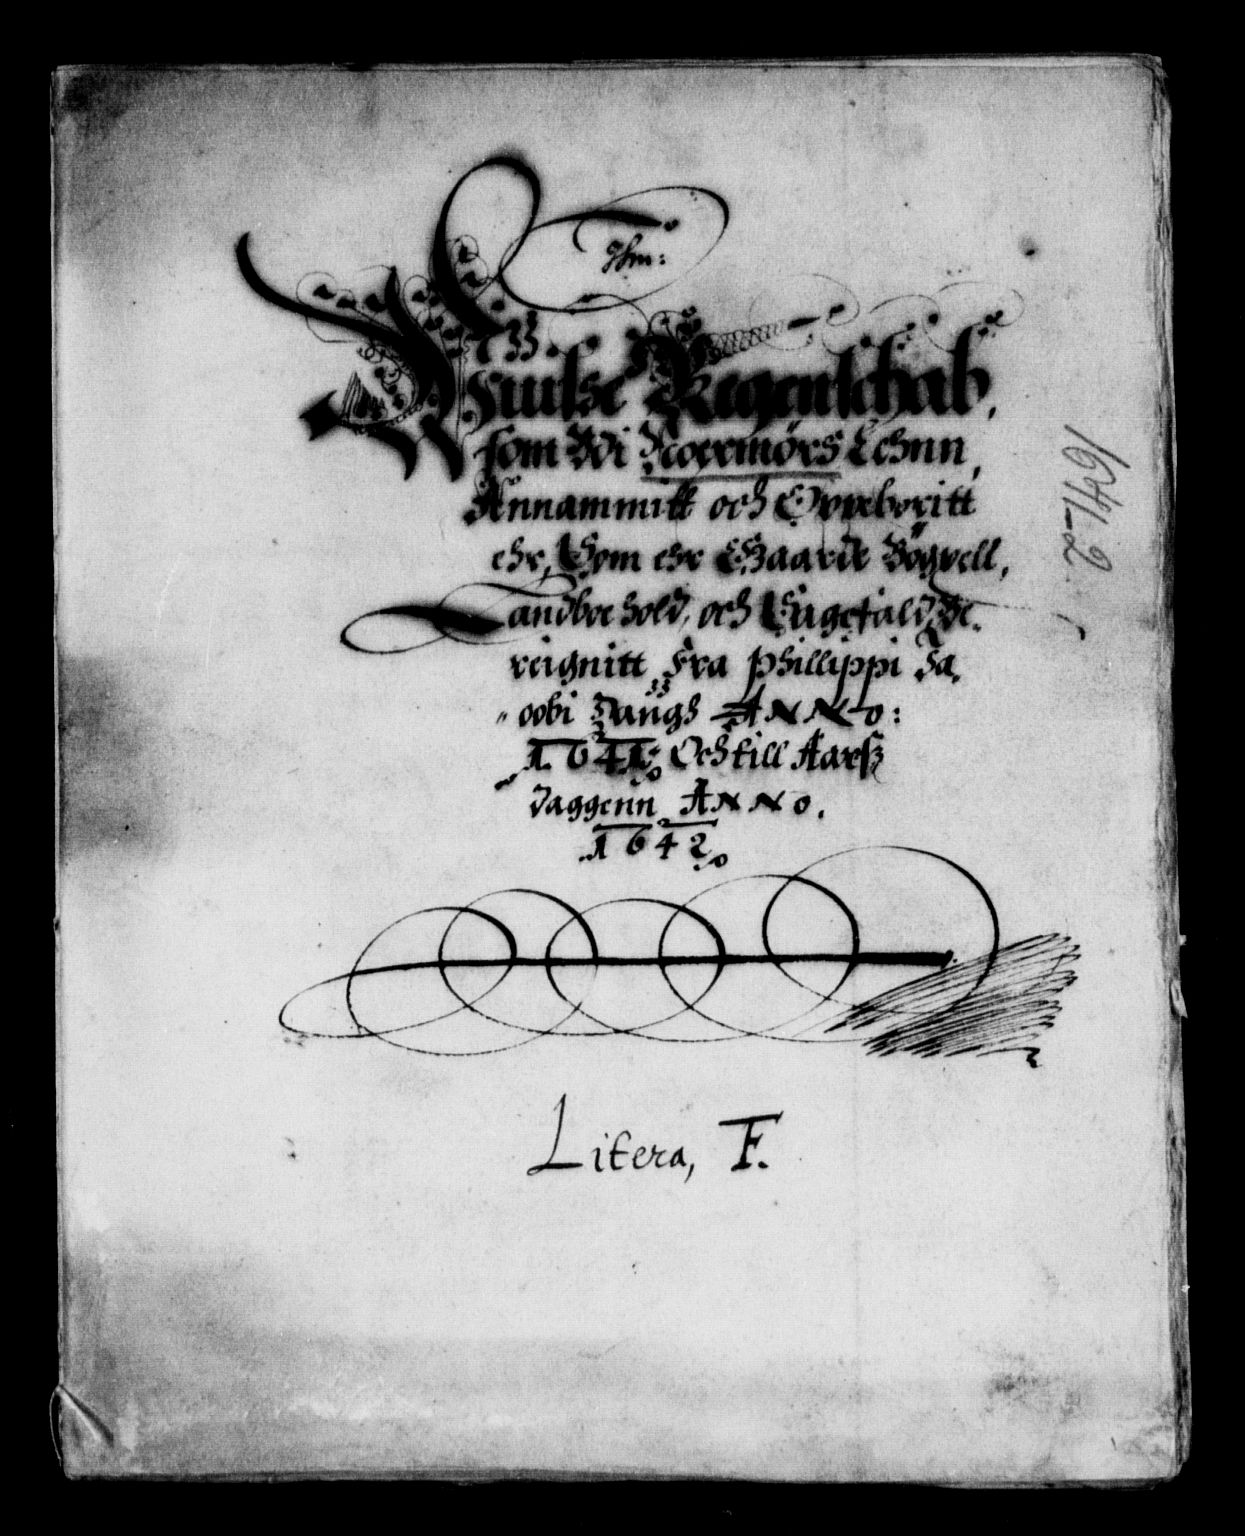 Ihm:
Wiulse Regenschab,
som Udi Noermørs Lehnn,
Annammitt och Oppeboritt
ehr, Som ehr Gaarde Bögxell,
Landboe hold, och Sagefald, Be¬
reignitt Fra Phillippi Ja¬
cobi Daugs ANNO:
1641. Och till Aarß
daggenn ANNO.
1642
Litera, F.
1641-2